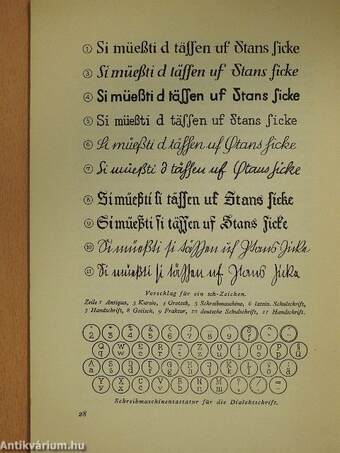 ① Si müeßti d täſſen uf Stans ſicke
③ Si müeßti d täſſen uf Stans ſicke
④ Si müeßti d täſſen uf Stans ſicke
⑤ Si müeßti d täſſen uf Stans ſicke
⑥ Si müeßti d täſſen uf Stans ſicke
⑦ Si müeßti d täſſen uf Stans ſicke
⑧ Si müeßti ſi täſſen uf Stans ſicke
⑨ Si müeßti ſi täſſen uf Stans ſicke
⑩ Si müeßti ſi täſſen uf Stans ſicke
⑪ Si müeßti ſi täſſen uf Stans ſicke
Vorschlag für ein sch-Zeichen.
Zeile 1 Antiqua, 3 Kursiv, 4 Grotesk, 5 Schreibmaschine, 6 latein. Schulschrift,
7 Handschrift, 8 Gotisch, 9 Fraktur, 10 deutsche Schulschrift, 11 Handschrift.
Schreibmaschinentastatur für die Dialektschrift.
28
Antikvárium.hu